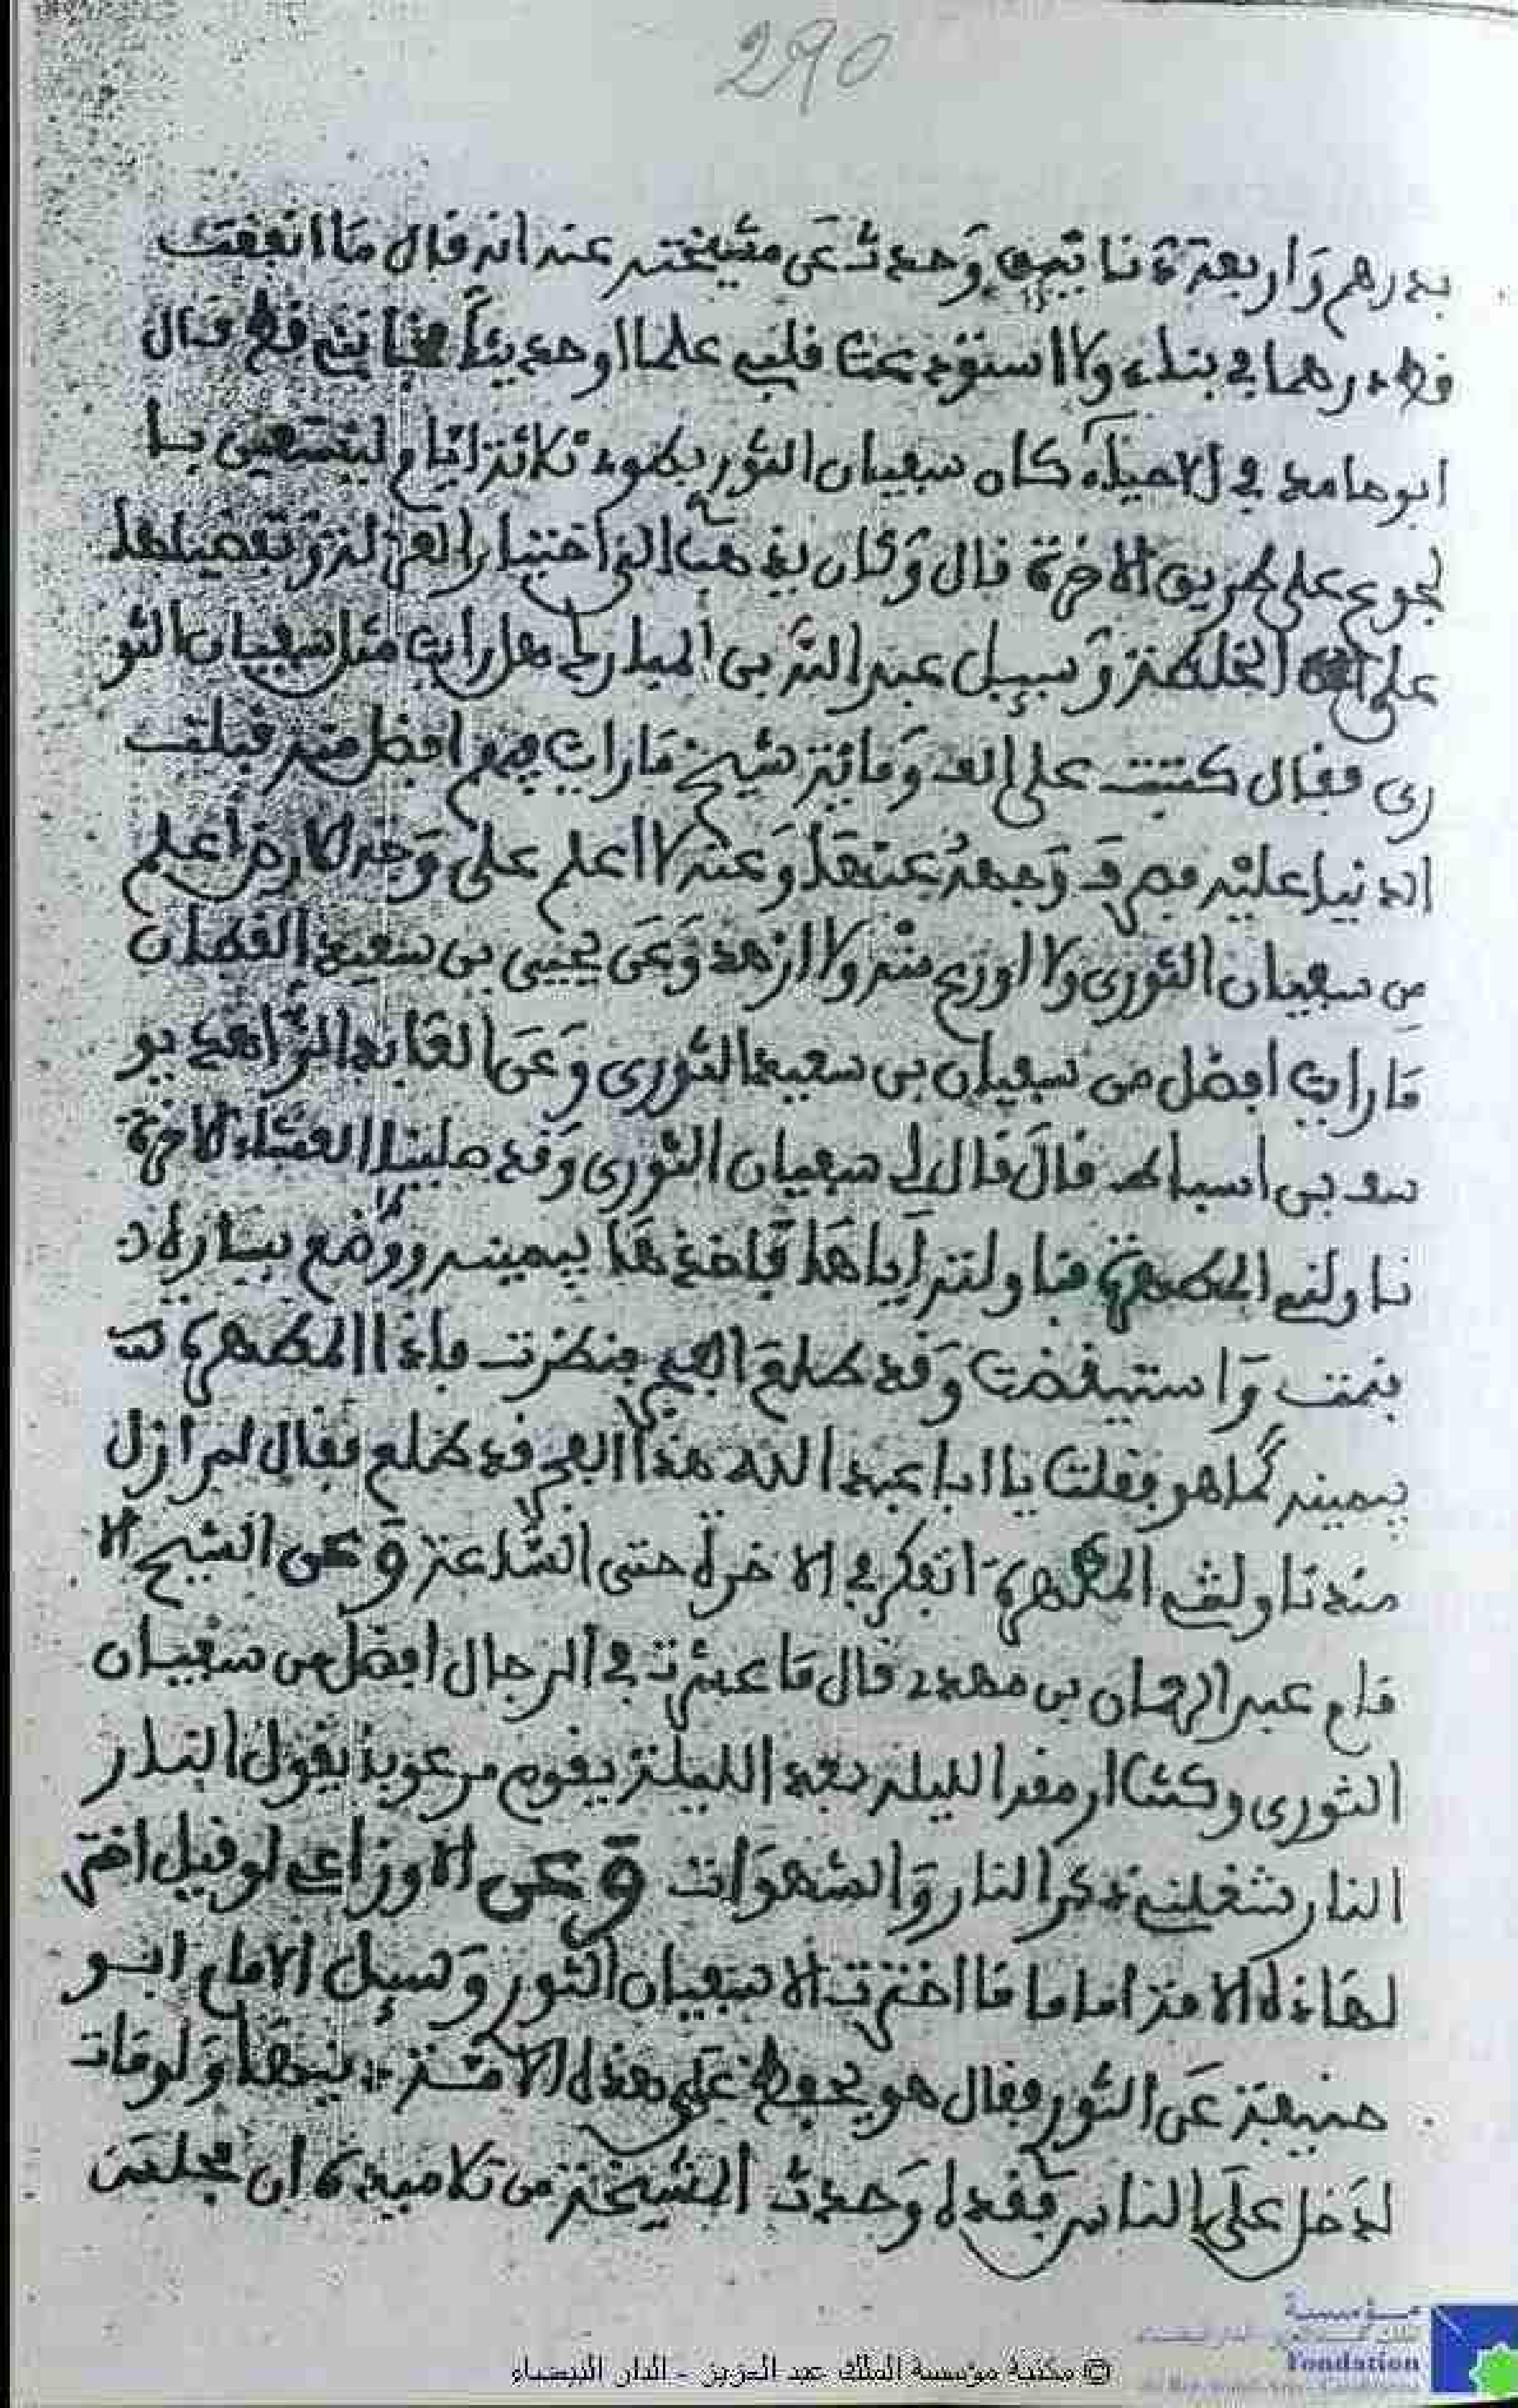 290
بدرهم واربعة دنانيق وحدث عن مشيخته عنه انه قال ما انفقت
قط درهما في بناء ولا استودعت قلبي علما او حديثا فخانني قط قال
ابو حامد في الاحياء كان سفيان الثوري يطوي ثلاثة ايام ليستعين با
لجوع على طريق الاخرة قال وكان يذهب الى اختيار العزلة وتفضيلها
على الخلطة وسيل عبد الله بن المبارك هل رايت مثل سفيان الثو
ري فقال كتبت على الف ومائة شيخ ما رايت فيهم افضل منه قبلت
الدنيا عليه فصرف وجهه عنها وعنه لا اعلم على وجه الارض اعلم
من سفيان الثوري ولا اورع منه ولا ازهد وعن يحيى بن سعيد القطان
ما رايت افضل من سفيان بن سعيد الثوري وعن العابد الزاهد يو
سف بن اسباط قال قال لي سفيان الثوري وقد صلينا العشاء الاخرة
ناولني المطهرة فناولته اياها فاخذها بيمينه ووضع يساره
فنمت واستيقضت وقد طلع الفجر فنظرت فاذا المطهرة
بيمينه كما هو فقلت يا ابا عبد الله هذا الفجر قد طلع فقال لم ازل
منذ ناولتني المطهرة اتفكر في الاخرة حتى الساعة وعن الشيخ الا
مام عبد الرحمان بن مهدي قال ما عشرت في الرجال افضل من سفيان
الثوري وكنت ارمقه الليلة بعد الليلة يقوم مرعوبا يقول النار
النار شغلني ذكر النار والشهوات وعن الاوزاعي لو قيل اختر
لهاذه الامة اماما ما اخترت الا سفيان الثوري وسيل الامام ابو
حنيفة عن الثوري فقال هو يحفظ على هذه الامة دينها ولو مات
لدخل على الناس فقده وحدث المشيخة من تلاميذه ان مجلسه
مؤسسة
Fondation
© مكتبة مؤسسة الملك عبد العزيز - الدار البيضاء